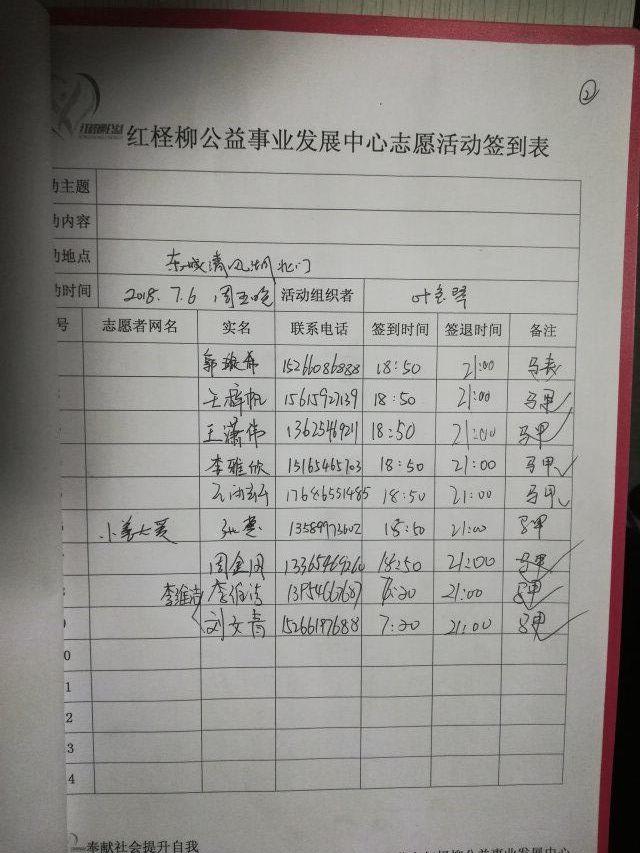 ②
红柽柳公益事业发展中心志愿活动签到表
动主题
动内容
动地点 东城清风湖北门
动时间 2018.7.6 周五晚 活动组织者
号 志愿者网名 实名 联系电话 签到时间 签退时间 备注
15266086888 18:50 21:00 马夹
15615927139 18:50 21:00 马甲
王潇伟 13625469211 18:50 21:00 马甲
李雅欣 15165465703 18:50 21:00 马甲
17686551485 18:50 21:00 马甲
张慧 13589973602 18:50 21:00 马甲
周金凤 13365469260 18:50 21:00 马甲
李维洁 李维洁 21:00 马甲
9 刘文青 15266197688 7:20 21:00 马甲
0
1
2
3
4
奉献社会提升自我
柽柳公益事业发展中心